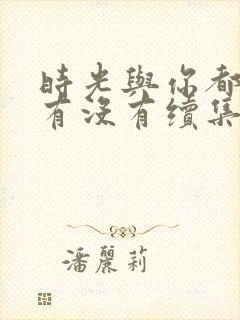 時光與你都
有沒有續集
潘麗莉